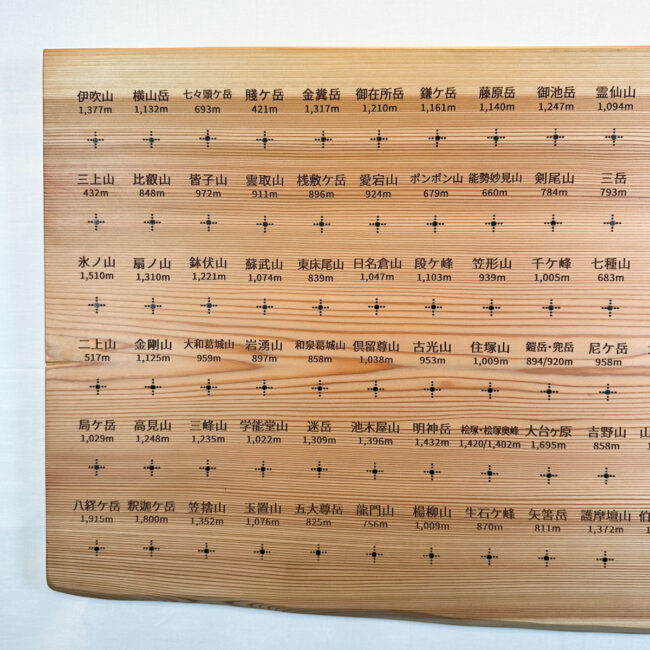 伊吹山 横山岳 七々頭ケ岳 賤ケ岳 金糞岳 御在所岳 鎌ケ岳 藤原岳 御池岳 霊仙山
1,377m 1,132m 693m 421m 1,317m 1,210m 1,161m 1,140m 1,247m 1,094m
三上山 比叡山 皆子山 雲取山 桟敷ケ岳 愛宕山 ポンポン山 能勢妙見山 剣尾山 三岳
432m 848m 972m 911m 896m 924m 679m 660m 784m 793m
氷ノ山 扇ノ山 鉢伏山 蘇武山 東床尾山 日名倉山 段ケ峰 笠形山 千ケ峰 七種山
1,510m 1,310m 1,221m 1,074m 839m 1,047m 1,103m 939m 1,005m 683m
二上山 金剛山 大和葛城山 岩湧山 和泉葛城山 倶留尊山 古光山 住塚山 鎧岳・兜岳 尼ケ岳
517m 1,125m 959m 897m 858m 1,038m 953m 1,009m 894/920m 958m
局ケ岳 高見山 三峰山 学能堂山 迷岳 池木屋山 明神岳 桧塚・桧塚奥峰 大台ヶ原 吉野山 山
1,029m 1,248m 1,235m 1,022m 1,309m 1,396m 1,432m 1,420/1,402m 1,695m 858m
八経ケ岳 釈迦ケ岳 笠捨山 玉置山 五大尊岳 龍門山 楊柳山 生石ケ峰 矢筈岳 護摩壇山 伯
1,915m 1,800m 1,352m 1,076m 825m 756m 1,009m 870m 811m 1,372m